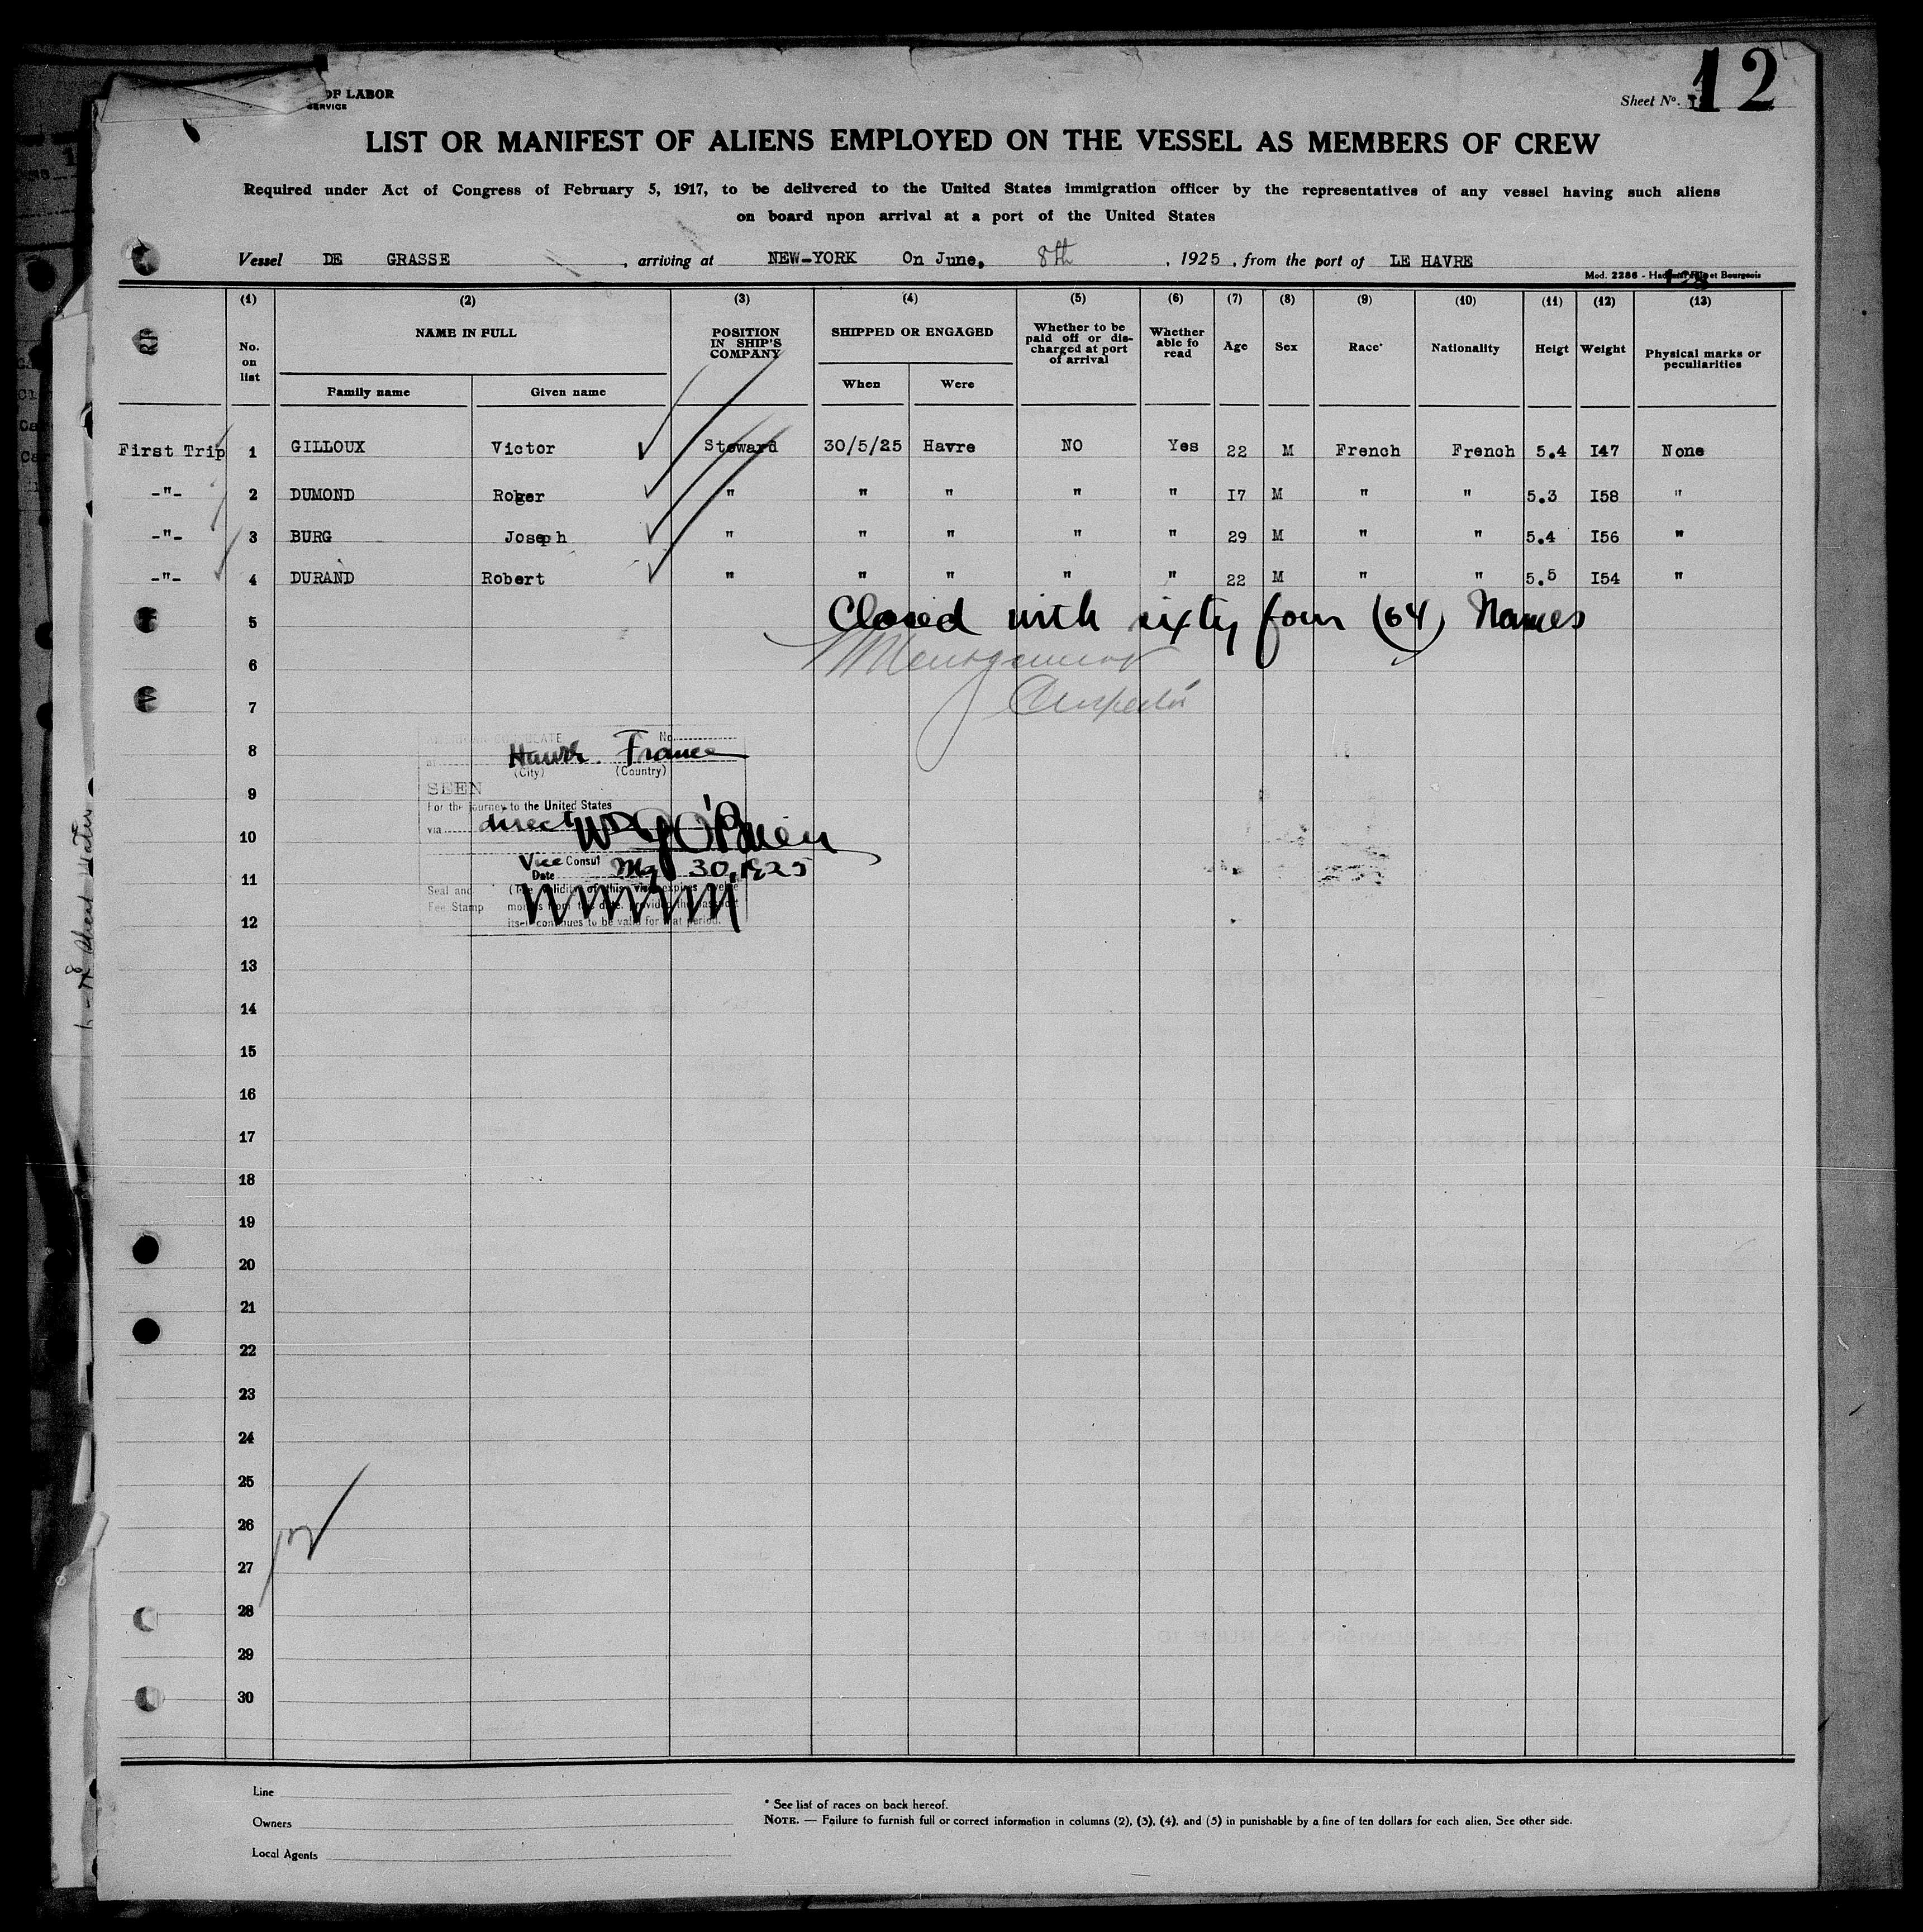 OF LABOR
SERVICE
Sheet No. 12
LIST OR MANIFEST OF ALIENS EMPLOYED ON THE VESSEL AS MEMBERS OF CREW
Required under Act of Congress of February 5, 1917, to be delivered to the United States immigration officer by the representatives of any vessel having such aliens
on board upon arrival at a port of the United States
Vessel DE GRASSE , arriving at NEW-YORK On June, 8th , 1925 , from the port of LE HAVRE
Mod. 2286 - et Bourgeois
(1) (2) (3) (4) (5) (6) (7) (8) (9) (10) (11) (12) (13)
No. on list NAME IN FULL POSITION IN SHIP'S COMPANY SHIPPED OR ENGAGED Whether to be paid off or discharged at port of arrival Whether able fo read Age Sex Race* Nationality Heigt Weight Physical marks or peculiarities
Family name Given name When Were
First Trip 1 GILLOUX Victor Steward 30/5/25 Havre NO Yes 22 M French French 5.4 I47 None
-"- 2 DUMOND Roger " " " " " I7 M " " 5.3 I58 "
-"- 3 BURG Joseph " " " " " 29 M " " 5.4 I56 "
-"- 4 DURAND Robert " " " " " 22 M " " 5.5 I54 "
5 Closed with sixty four (64) Names
6 Montgomery
7 Inspector
8
AMERICAN CONSULATE No.
at Havre. France
(City) (Country)
9
SEEN
For the journey to the United States
via direct
10
O'Brien
Vice Consul
Date May 30, 1925
11
Seal and Fee Stamp
(The validity of this visa expires twelve
months from this date, provided the passport
itself continues to be valid for that period.
12
13
14
15
16
17
18
19
20
21
22
23
24
25
26
27
28
29
30
Line
Owners
Local Agents
* See list of races on back hereof.
NOTE. — Failure to furnish full or correct information in columns (2), (3), (4), and (5) in punishable by a fine of ten dollars for each alien. See other side.